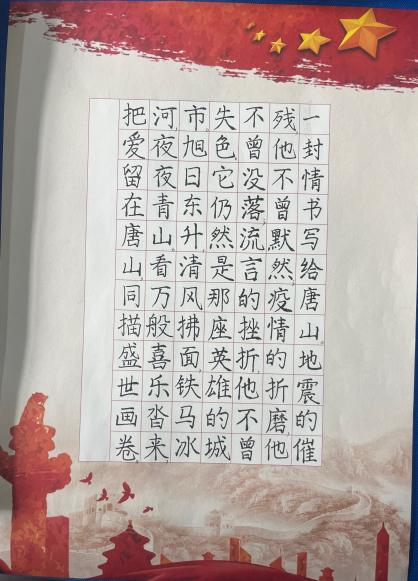 一封情书写给唐山，地震的催
残，他不曾默然，疫情的折磨，他
不曾没落，流言的挫折，他不曾
失色，它仍然是那座英雄的城
市，旭日东升，清风拂面，铁马冰
河，夜夜青山。看万般喜乐沓来，
把爱留在唐山。同描盛世画卷，